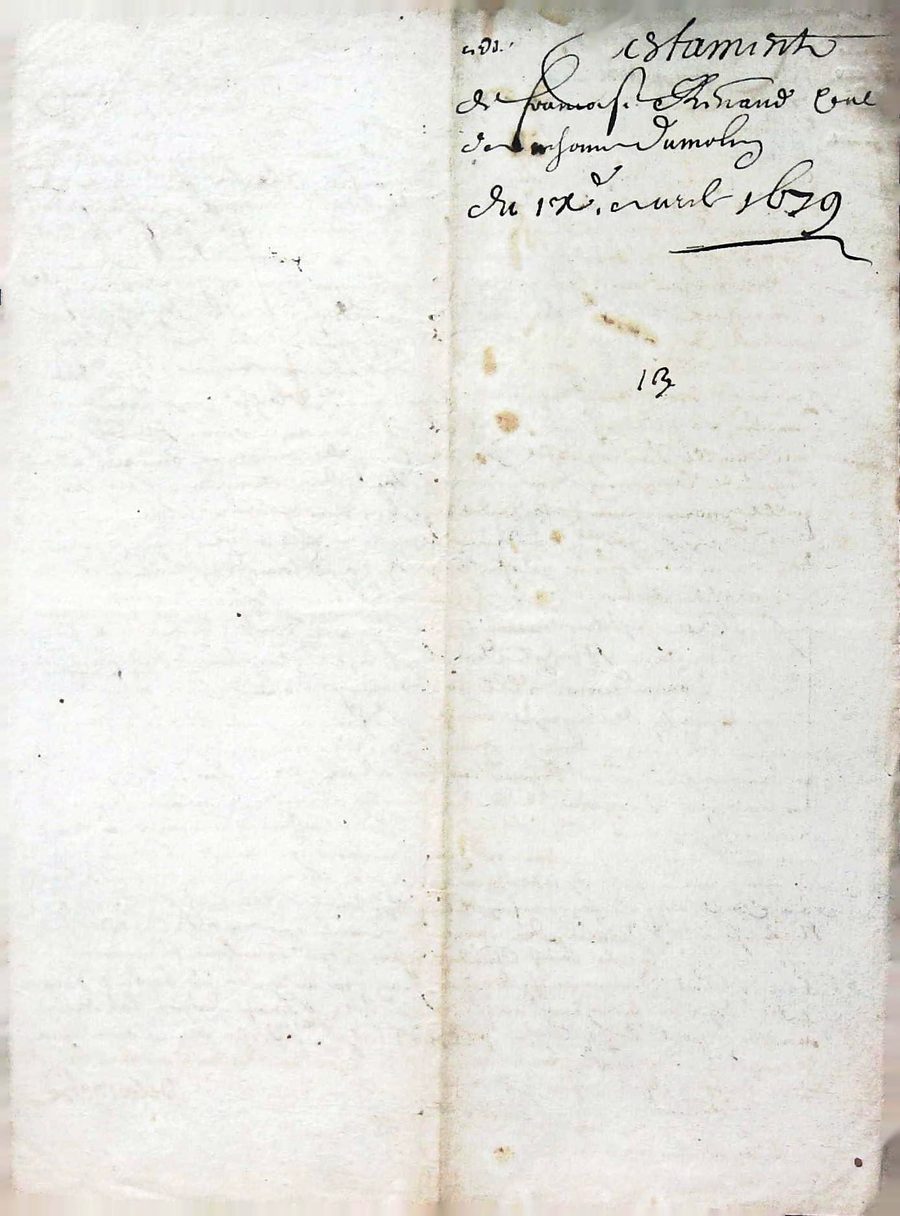 Testament
de francoise Renaud
Dumolin
du ix.e avril 1679
13